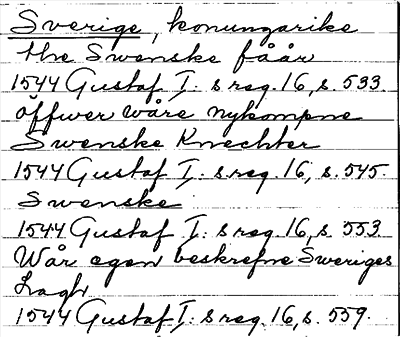 Sverige, konungarike
the Swenske fåår
1544 Gustaf I:s reg. 16, s. 533.
öffwer wåre nykompne
Swenske Knechter
1544 Gustaf I:s reg. 16, s. 545.
Swenske
1544 Gustaf I:s reg. 16, s. 553
Wår egen beskrefne Sweriges
Lagh
1544 Gustaf I:s reg. 16, s. 559.